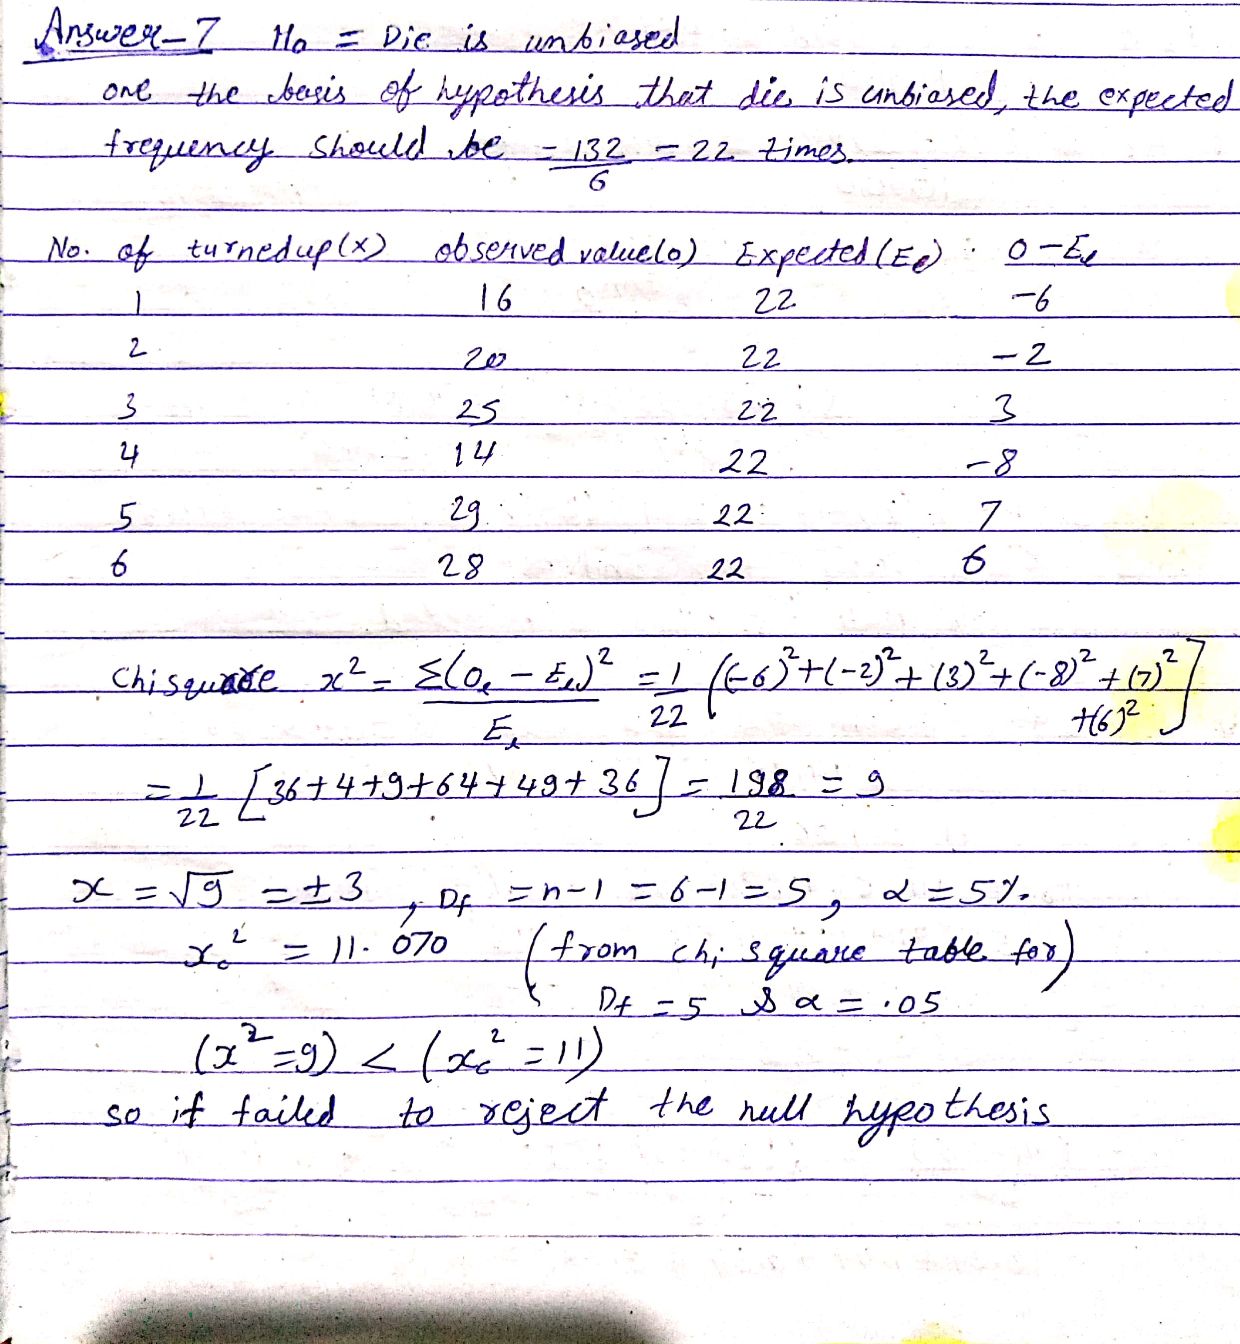 Answer-7 H₀ = Die is unbiased
one the basis of hypothesis that die is unbiased, the expected
frequency should be = 132/6 = 22 times.
No. of turnedup(x) observed value(o) Expected (Ee) O-Ee
1 16 22 -6
2 20 22 -2
3 25 22 3
4 14 22 -8
5 29 22 7
6 28 22 6
Chisquare x² = Σ(Oe - Ee)²/Ee = 1/22 [(-6)²+(-2)²+(3)²+(-8)²+(7)²
+(6)²]
= 1/22 [36+4+9+64+49+36] = 198/22 = 9
x = √9 = ±3 , Df = n-1 = 6-1 = 5, α = 5%.
xc² = 11.070 (from chi square table for)
Df = 5 & α = .05
(x²=9) < (xc²=11)
so it failed to reject the null hypothesis